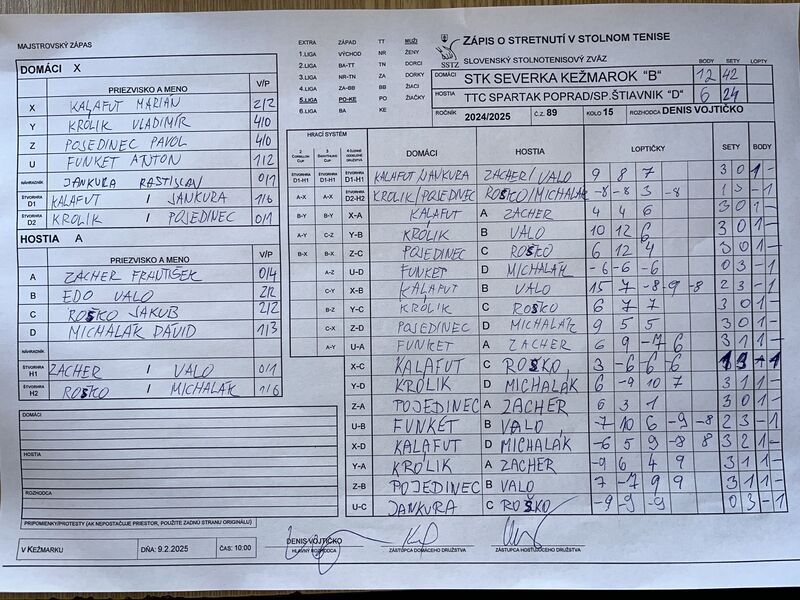 MAJSTROVSKÝ ZÁPAS
DOMÁCI X
PRIEZVISKO A MENO V/P
X KALAFUT MARIAN 2/2
Y KROLIK VLADIMÍR 4/0
Z POJEDINEC PAVOL 4/0
U FUNKET ANTON 1/2
NÁHRADNÍK JANKURA RASTISLAV 0/1
ŠTVORHRA D1 KALAFUT / JANKURA 1/0
ŠTVORHRA D2 KROLIK / POJEDINEC 0/1
HOSTIA A
PRIEZVISKO A MENO V/P
A ZACHER FRANTIŠEK 0/4
B EDO VALO 2/2
C ROŠKO JAKUB 2/2
D MICHALÁK DÁVID 1/3
NÁHRADNÍK
ŠTVORHRA H1 ZACHER / VALO 0/1
ŠTVORHRA H2 ROŠKO / MICHALÁK 1/0
DOMÁCI
HOSTIA
ROZHODCA
PRIPOMIENKY/PROTESTY (AK NEPOSTAČUJE PRIESTOR, POUŽITE ZADNÚ STRANU ORIGINÁLU)
V KEŽMARKU DŇA: 9.2.2025 ČAS: 10:00
EXTRA ZÁPAD TT MUŽI
1.LIGA VÝCHOD NR ŽENY
2.LIGA BA-TT TN DORCI
3.LIGA NR-TN ZA DORKY
4.LIGA ZA-BB BB ŽIACI
5.LIGA PO-KE PO ŽIAČKY
6.LIGA BA KE
SSTZ
ZÁPIS O STRETNUTÍ V STOLNOM TENISE
SLOVENSKÝ STOLNOTENISOVÝ ZVÄZ BODY SETY LOPTY
DOMÁCI STK SEVERKA KEŽMAROK "B" 12 42
HOSTIA TTC SPARTAK POPRAD/SP.ŠTIAVNIK "D" 6 24
ROČNÍK 2024/2025 Č.Z. 89 KOLO 15 ROZHODCA DENIS VOJTIČKO
HRACÍ SYSTÉM DOMÁCI HOSTIA LOPTIČKY SETY BODY
ŠTVORHRA D1-H1 KALAFUT/JANKURA ZACHER/VALO 9 8 7 3 0 1 -
ŠTVORHRA D2-H2 KROLIK/POJEDINEC ROŠKO/MICHALÁK -8 -8 3 -8 1 3 - 1
X-A KALAFUT A ZACHER 4 4 6 3 0 1 -
Y-B KROLIK B VALO 10 12 6 3 0 1 -
Z-C POJEDINEC C ROŠKO 6 12 4 3 0 1 -
U-D FUNKET D MICHALÁK -6 -6 -6 0 3 - 1
X-B KALAFUT B VALO 15 7 -8 -9 -8 2 3 - 1
Y-C KROLIK C ROŠKO 6 7 7 3 0 1 -
Z-D POJEDINEC D MICHALÁK 9 5 5 3 0 1 -
U-A FUNKET A ZACHER 6 9 -7 6 3 1 1 -
X-C KALAFUT C ROŠKO 3 -6 -6 -6 1 3 - 1
Y-D KROLIK D MICHALÁK 6 -9 10 7 3 1 1 -
Z-A POJEDINEC A ZACHER 6 3 1 3 0 1 -
U-B FUNKET B VALO -7 10 6 -9 -8 2 3 - 1
X-D KALAFUT D MICHALÁK -6 5 9 -8 8 3 2 1 -
Y-A KROLIK A ZACHER -9 6 4 9 3 1 1 -
Z-B POJEDINEC B VALO 7 -7 9 9 3 1 1 -
U-C JANKURA C ROŠKO -9 -9 -9 0 3 - 1
DENIS VOJTIČKO
HLAVNÝ ROZHODCA ZÁSTUPCA DOMÁCEHO DRUŽSTVA ZÁSTUPCA HOSŤUJÚCEHO DRUŽSTVA